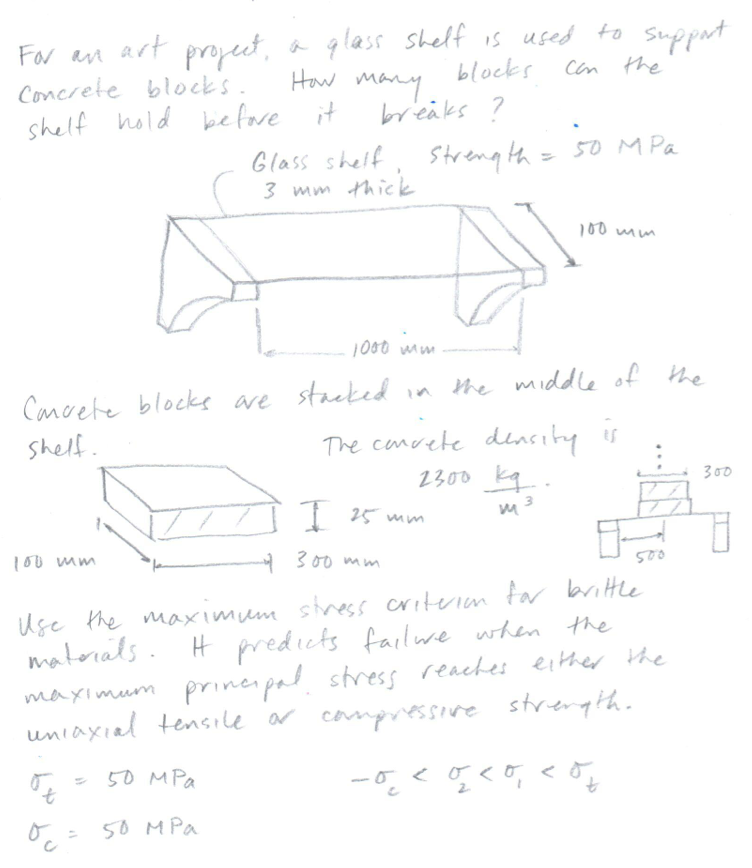 For an art project, a glass shelf is used to support
concrete blocks. How many blocks can the
shelf hold before it breaks?
Glass shelf, strength = 50 MPa
3 mm thick
100 mm
1000 mm
Concrete blocks are stacked in the middle of the
shelf. The concrete density is
2300 kg/m³.
300
25 mm
100 mm
300 mm
500
Use the maximum stress criterion for brittle
materials. It predicts failure when the
maximum principal stress reaches either the
uniaxial tensile or compressive strength.
σ_t = 50 MPa
-σ_c < σ_2 < σ_1 < σ_t
σ_c = 50 MPa